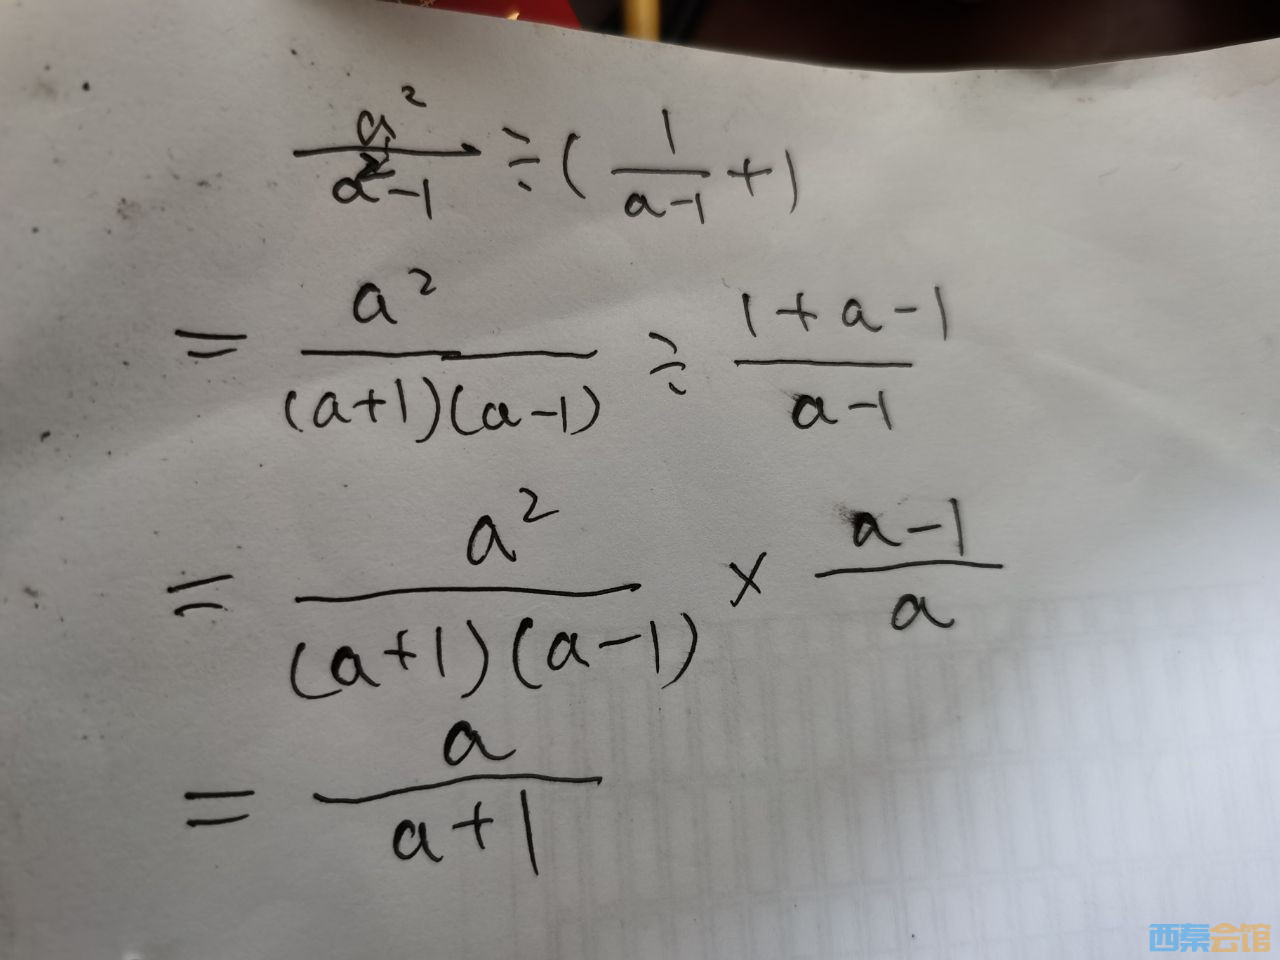 a²/(a²-1) ÷ (1/(a-1) + 1
= a²/((a+1)(a-1)) ÷ (1+a-1)/(a-1)
= a²/((a+1)(a-1)) × (a-1)/a
= a/(a+1)
西秦会馆